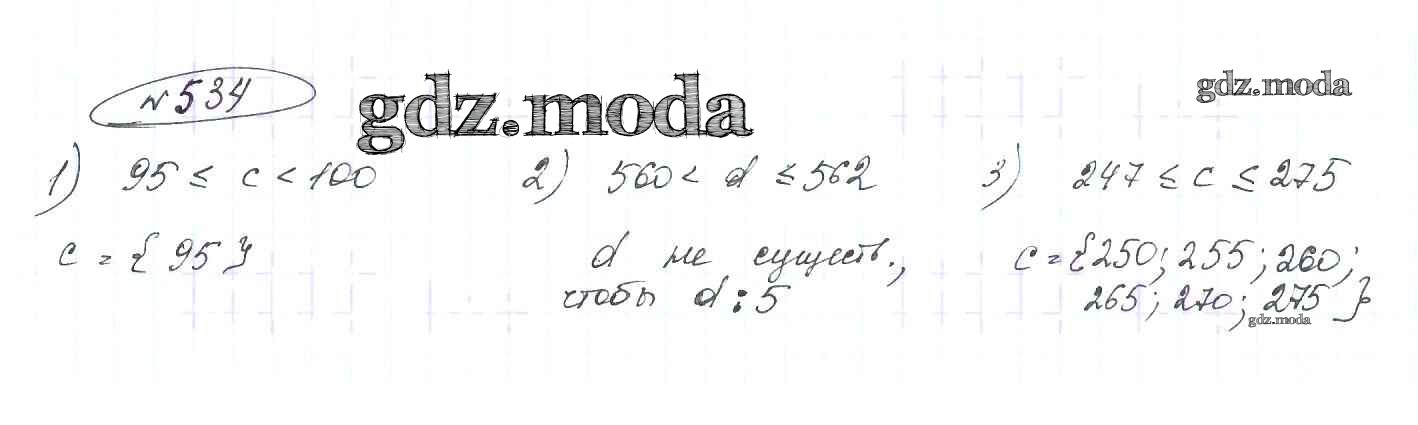 № 534
gdz.moda
gdz.moda
1) 95 ≤ c < 100
c = { 95 }
2) 560 < d ≤ 562
d не существ.,
чтобы d ⋮ 5
3) 247 ≤ c ≤ 275
c = {250; 255; 260;
265; 270; 275 }
gdz.moda